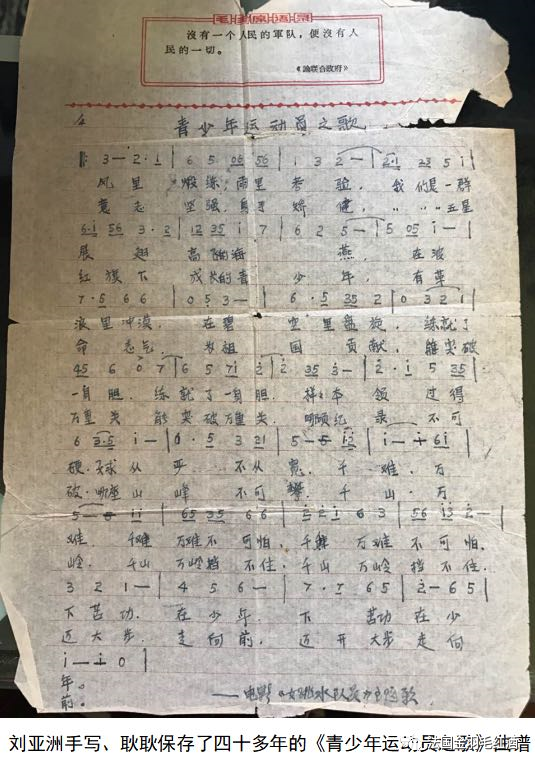 毛主席语录
沒有一个人民的軍队，便沒有人
民的一切。
《論联合政府》
青少年运动员之歌
3 — 2·1 | 6 5 06 56 | 1 3 2 — | 2·1 23 5 i |
风里 煅练，雨里 考 验， 我们是一群
意志 坚强，身手 矫 健， 〃 〃 〃 五星
6·i 56 3·2 | 12 35 i 7 | 6 2 5 — | 5 05 i — |
展 翅 高飞的海 燕， 在波
红旗下 成长的青 少 年， 有革
7·5 6 6 | 0 5 3 — | 6·5 35 2 | 0 3 2 1 |
浪里冲漠， 在碧 空里盘旋， 练就了
命 志气， 为祖 国 贡献， 能突破
45 6 0 7 | 6 5 7i 2 | 2 35 3 — | 2·i 5 35 |
一身胆， 练就了一身胆， 样样本 领 过得
万重关 能突破万重关， 哪项纪 录 不可
6 3·5 i — | 1·5 3 21 | 5 — 5 i2 | i — i 6i |
硬，球从 严 不从 宽， 千 难，万
破，哪座山 峰 不可 攀， 千 山，万
5 — 6 ii | 65 35 6 6 | 5 2 i 6 3 | 56 i3 2 — |
难， 千难 万难不 可怕， 千难 万难 不可怕，
岭， 千山 万岭挡 不住， 千山 万岭 挡不住，
3 2 1 — | 4 5 6 — | 7·7 6 5 | 2 — 6 5 |
下苦功， 在少年， 下 苦功在少
迈大步， 走向前， 迈开大步走向
i — i 0 |
年。
前。
——电影《女跳水队员》主题歌
刘亚洲手写、耿耿保存了四十多年的《青少年运动员之歌》曲谱